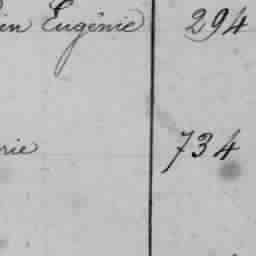 in Eugénie 294
rie 734